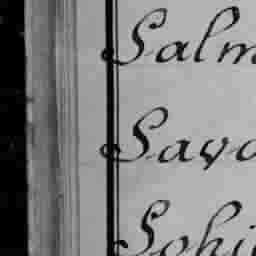 Salm
Sayo
Sohi